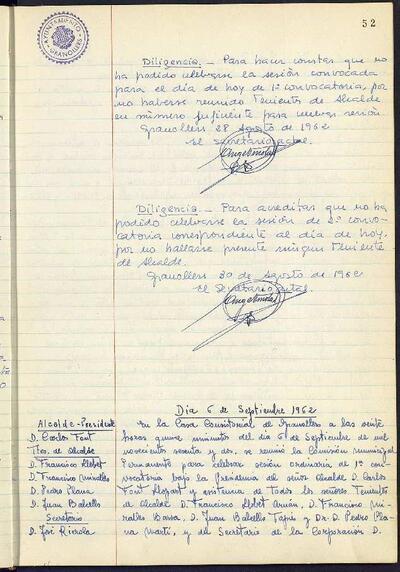 52
AYUNTAMIENTO
GRANOLLERS
Diligencia. — Para hacer constar que no
ha podido celebrarse la sesión convocada
para el día de hoy de 1ª convocatoria, por
no haberse reunido Tenientes de Alcalde
en número suficiente para celebrar sesión.
Granollers 28 agosto de 1962
el secretario actal.
Diligencia. — Para acreditar que no ha
podido celebrarse la sesión de 2ª convo-
catoria correspondiente al día de hoy,
por no hallarse presente ningun Teniente
de Alcalde.
Granollers 30 de agosto de 1962
el Secretario actal.
Dia 6 de Septiembre 1962
Alcalde-Presidente
D. Carlos Font
Ttes. de alcalde
D. Francisco Llobet
D. Francisco Miralles
D. Pedro Plana
D. Juan Babello
Secretario
D. José
En la Casa Consistorial de Granollers a las siete
horas quince minutos del día 6 de Septiembre de mil
novecientos sesenta y dos, se reunió la Comisión municipal
Permanente para celebrar sesión ordinaria de 1ª con-
vocatoria bajo la Presidencia del señor Alcalde D. Carlos
Font Llopart y asistencia de todos los señores Tenientes
de Alcalde D. Francisco Llobet Arnán, D. Francisco Mi-
ralles Barsa, D. Juan Babello Tapias y Dr. D. Pedro Pla-
na Martí, y del Secretario de la Corporación D.